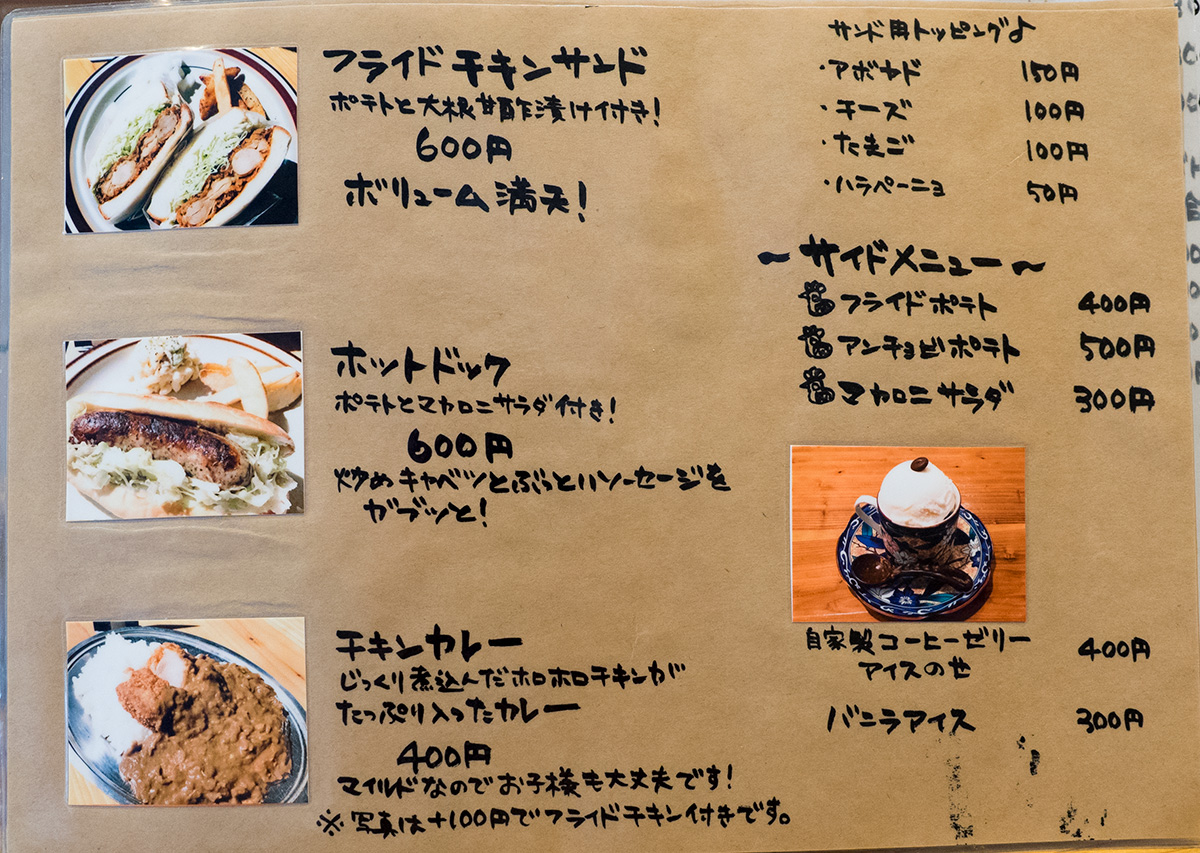 フライドチキンサンド
ポテトと大根甘酢漬け付き!
600円
ボリューム満天!
ホットドック
ポテトとマカロニサラダ付き!
600円
炒めキャベツとぶっといソーセージを
ガブッと!
チキンカレー
じっくり煮込んだホロホロチキンが
たっぷり入ったカレー
400円
マイルドなのでお子様も大丈夫です!
※写真は+100円でフライドチキン付きです。
サンド用トッピング♪
・アボカド 150円
・チーズ 100円
・たまご 100円
・ハラペーニョ 50円
~サイドメニュー~
フライドポテト 400円
アンチョビポテト 500円
マカロニサラダ 300円
自家製コーヒーゼリー 400円
アイスのせ
バニラアイス 300円